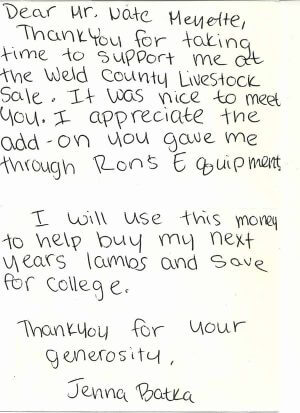 Dear Mr. Nate Meyette,
Thankyou for taking
time to support me at
the Weld County Livestock
Sale. It was nice to meet
you. I appreciate the
add-on you gave me
through Ron's Equipment
I will use this money
to help buy my next
years lambs and save
for college.
Thankyou for your
generosity,
Jenna Batka